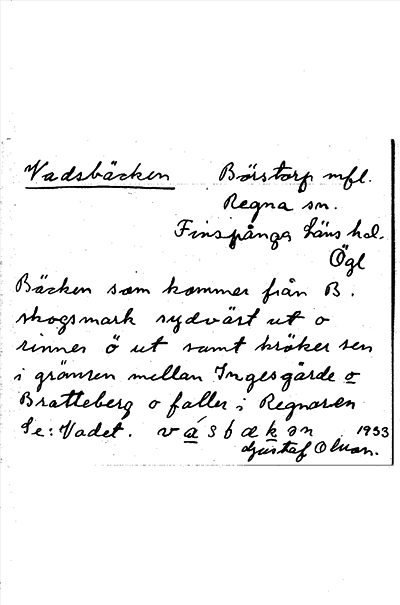 Vadsbäcken Börstorp mfl.
Regna sn.
Finspånga läns hd.
Ögl
Bäcken som kommer från B.
skogsmark sydväst ut o
rinner ö ut samt kröker sen
i gränsen mellan Ingesgärde o
Bratteberg o faller i Regnaren
Se: Vadet. v á s b æ k ə n 1933
Gustaf Olson.